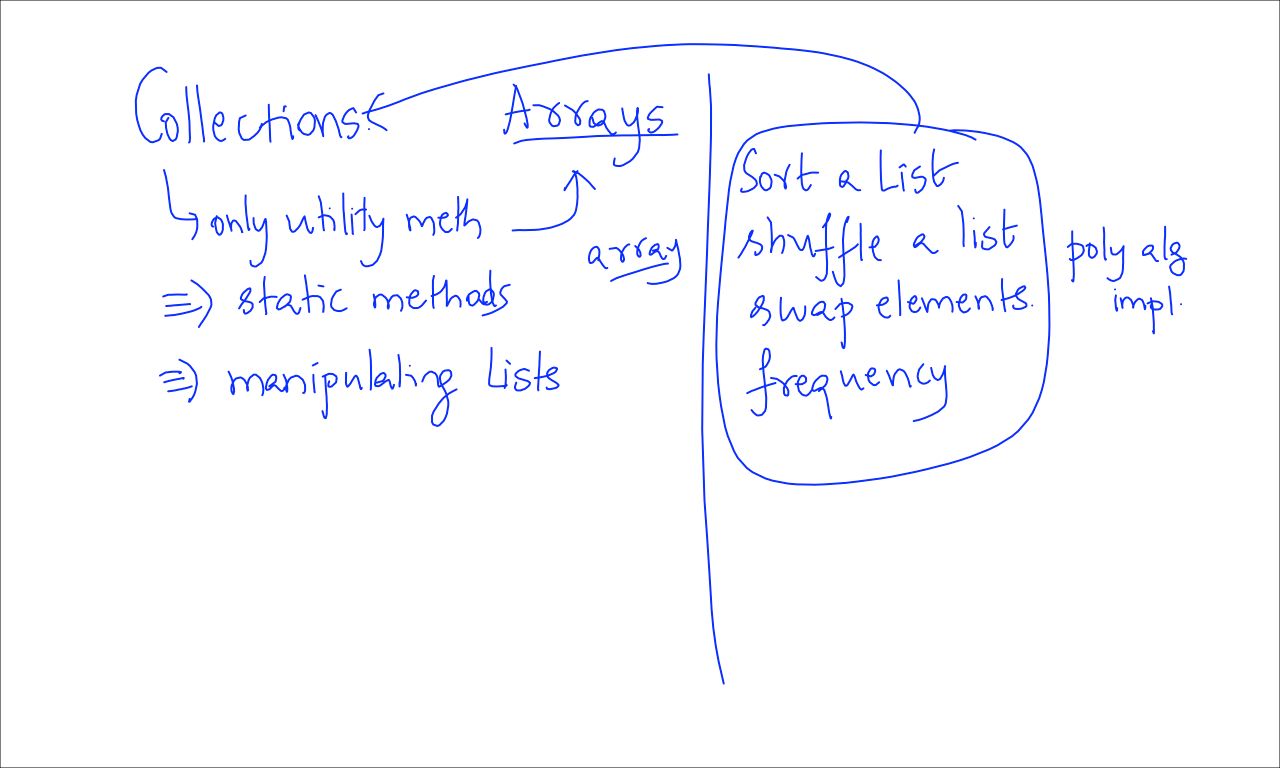 Collections Arrays
only utility meth
array
⇒ static methods
⇒ manipulating Lists
Sort a List
shuffle a list
swap elements.
frequency
poly alg
impl.